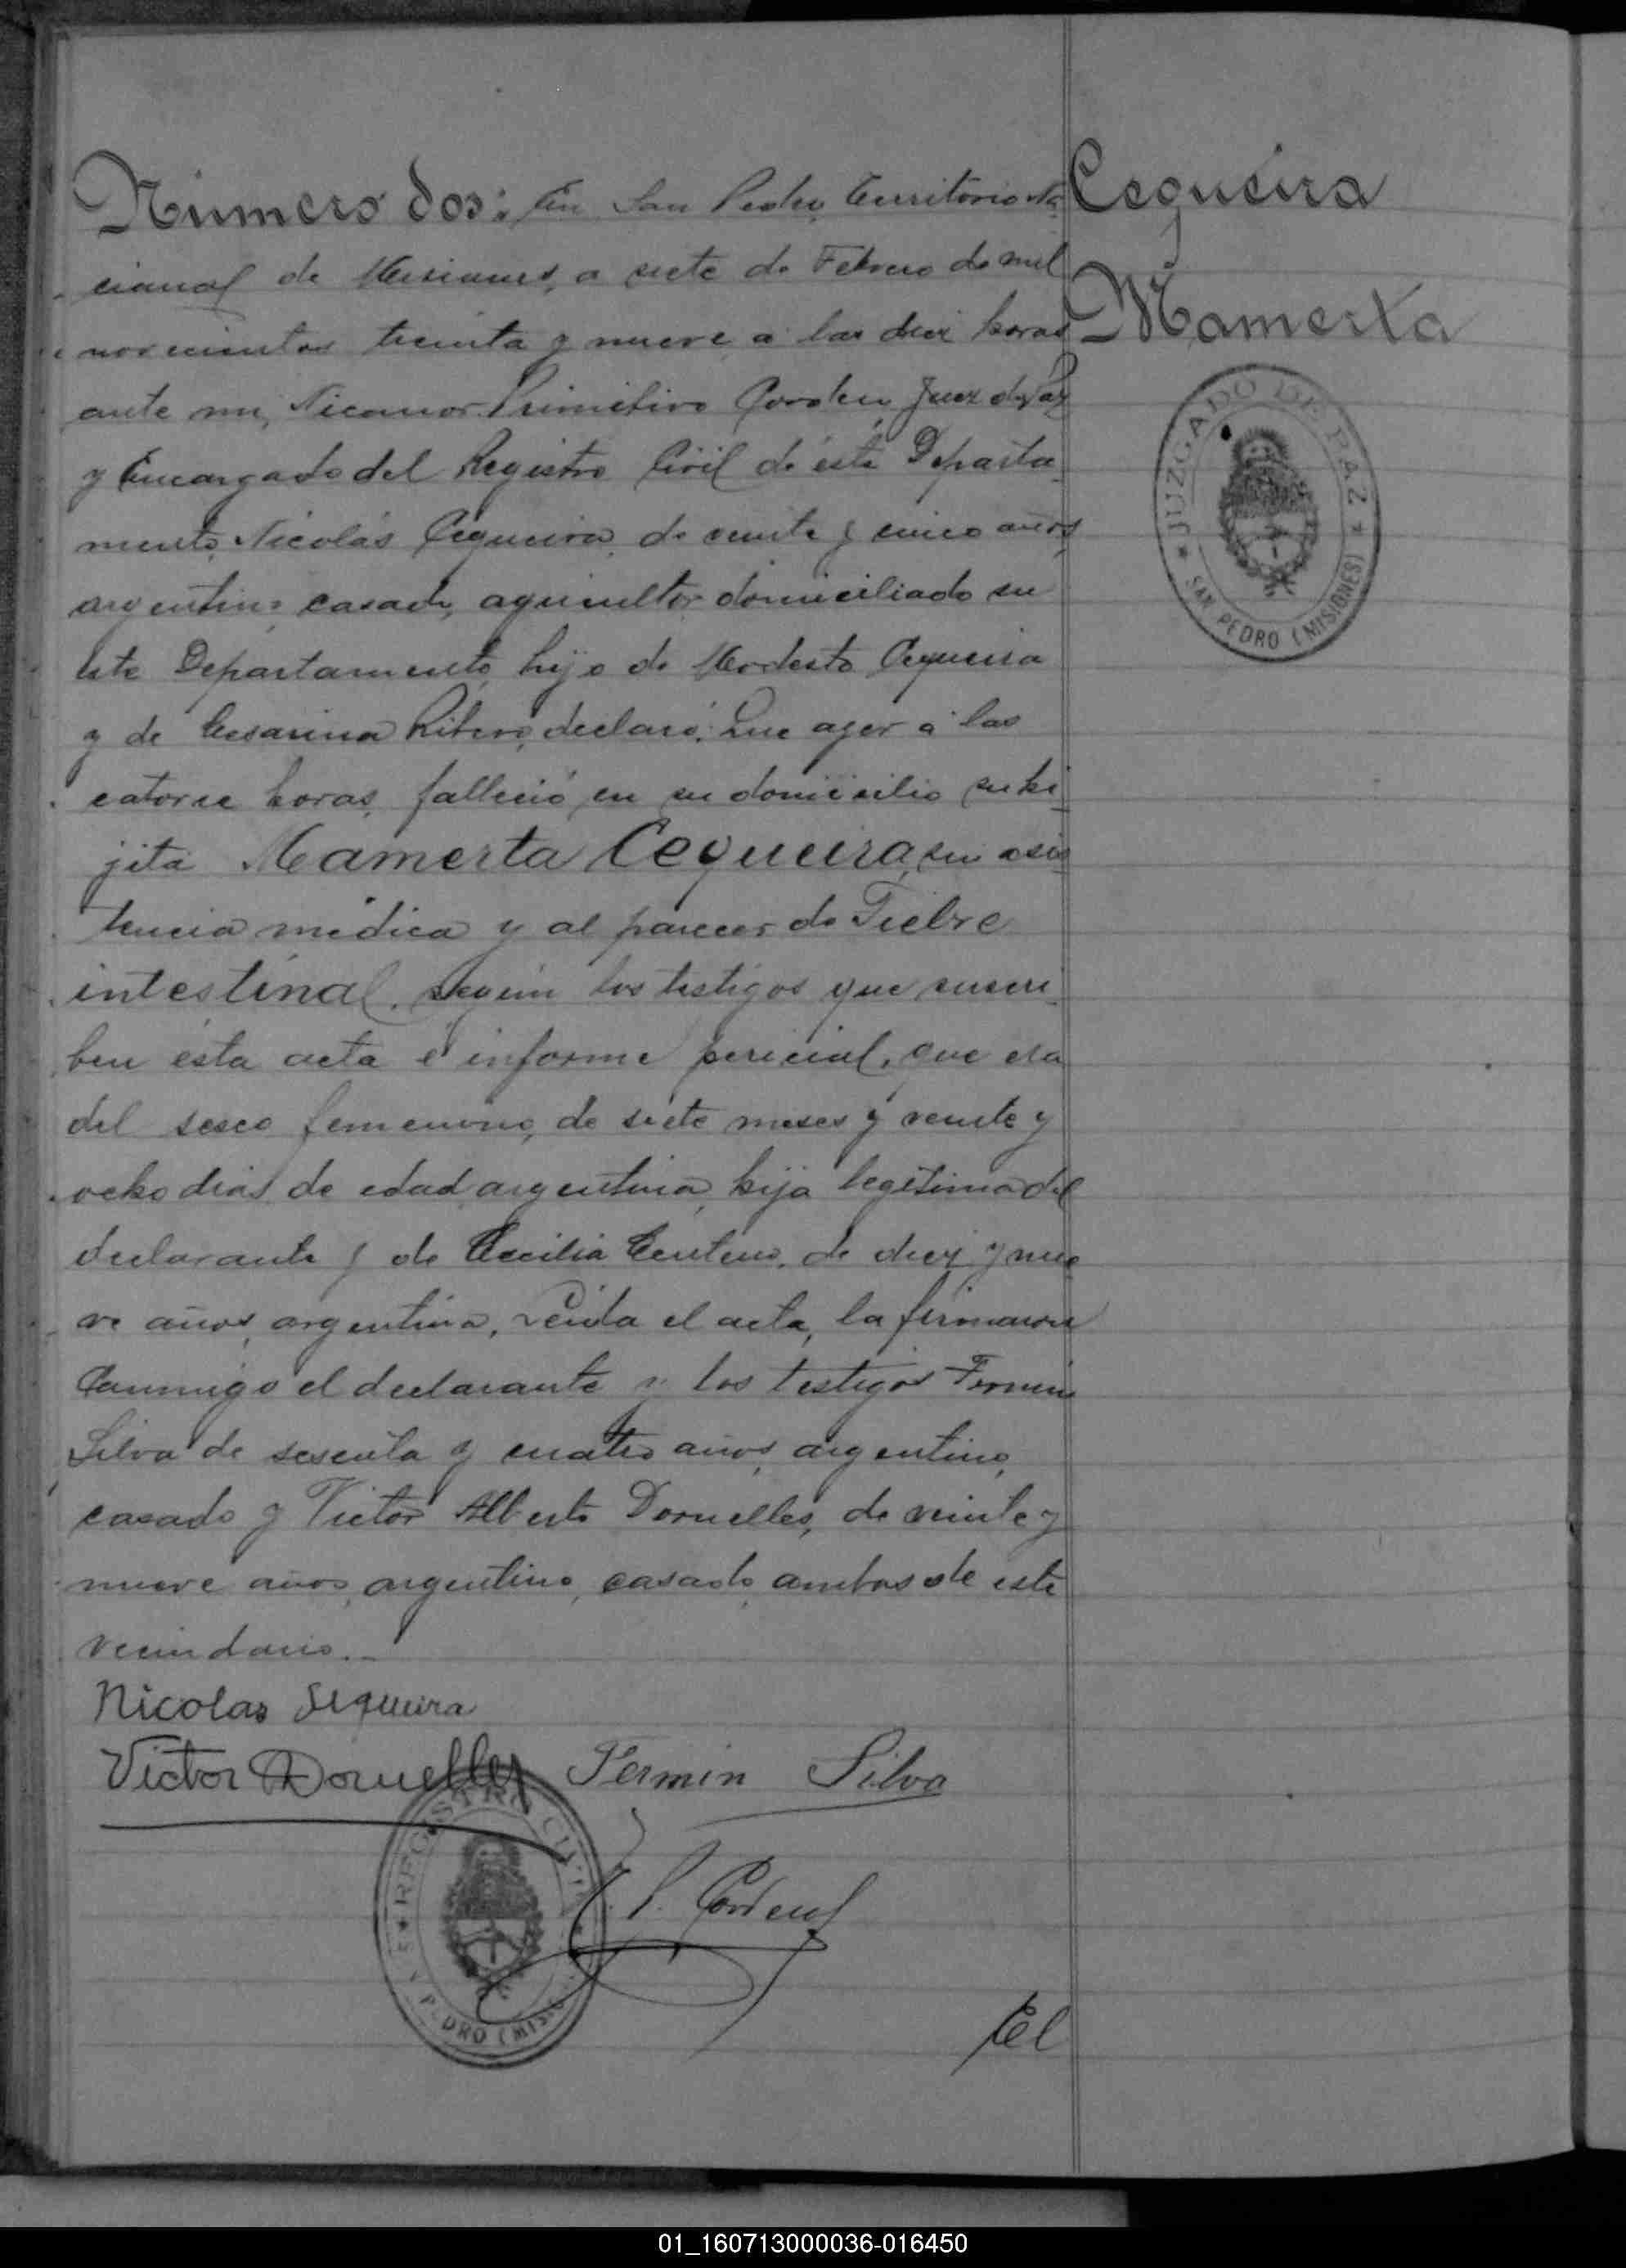 Número dos: En San Pedro, Territorio Na-
cional de Misiones, a siete de Febrero de mil
novecientos treinta y nueve, a las diez horas
ante mi, Nicanor Primitivo Juez de Paz
y Encargado del Registro Civil de éste Departa-
mento, Nicolás Cequeira, de veinte y cinco años,
argentino, casado, agricultor domiciliado en
este Departamento, hijo de Modesto Cequeira
y de Cesarina declaró: Que ayer á las
catorce horas, falleció en su domicilio su hi-
jita Mamerta Cequeira, sin asis-
tencia médica y al parecer de Fiebre
intestinal, según los testigos que suscri-
ben ésta acta é informe pericial, que era
del sexo femenino, de siete meses y veinte y
ocho días de edad, argentina, hija legítima del
declarante y de Cecilia Centeno, de diez y nue-
ve años, argentina, Leida el acta, la firmaron
Conmigo el declarante y los testigos Fermin
Silva de sesenta y cuatro años, argentino,
casado y Victor Alberto Dornelles, de veinte y
nueve años, argentino, casado, ambos de este
vecindario.-
Nicolas Sequeira
Victor Dornelles Fermin Silva
P.
El
Cequeira
Mamerta
JUZGADO DE PAZ
SAN PEDRO (MISIONES)
REGISTRO CIVIL
SAN PEDRO (MISIONES)
01_160713000036-016450